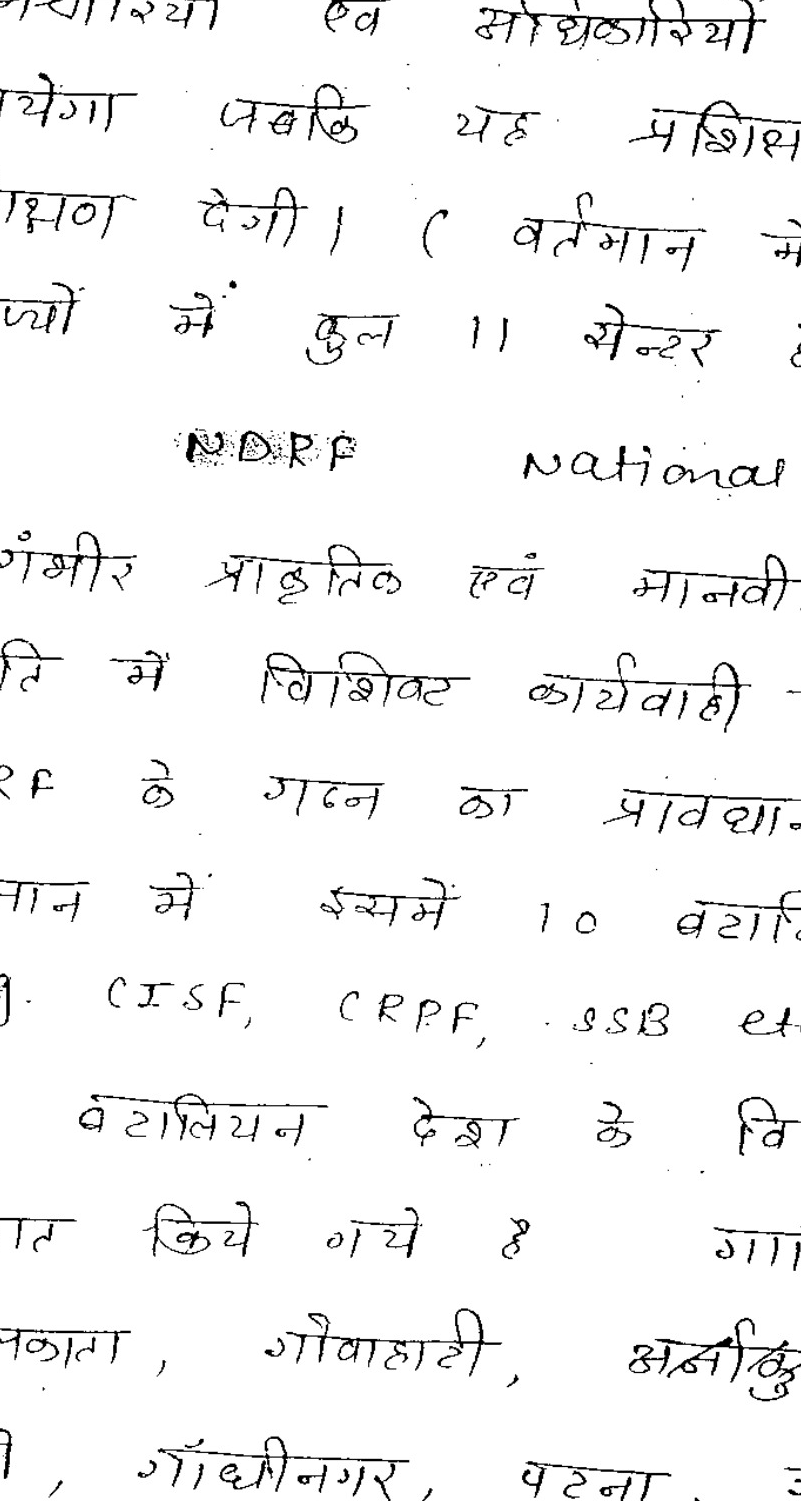 एव अधिकारियों
येगा जबकि यह प्रशिक्ष
क्षण देगी। ( वर्तमान मे
ज्यों में कुल 11 सेन्टर
NDRF National
गंभीर प्राकृतिक एवं मानवी
ति में विशिष्ट कार्यवाही
RF के गठन का प्रावधान
मान में इसमें 10 बटालि
g. CISF, CRPF, SSB etc
बटालियन देश के वि
ात किये गये है
लकाता, गौवाहाटी,
ी, गाँधीनगर, पटना,